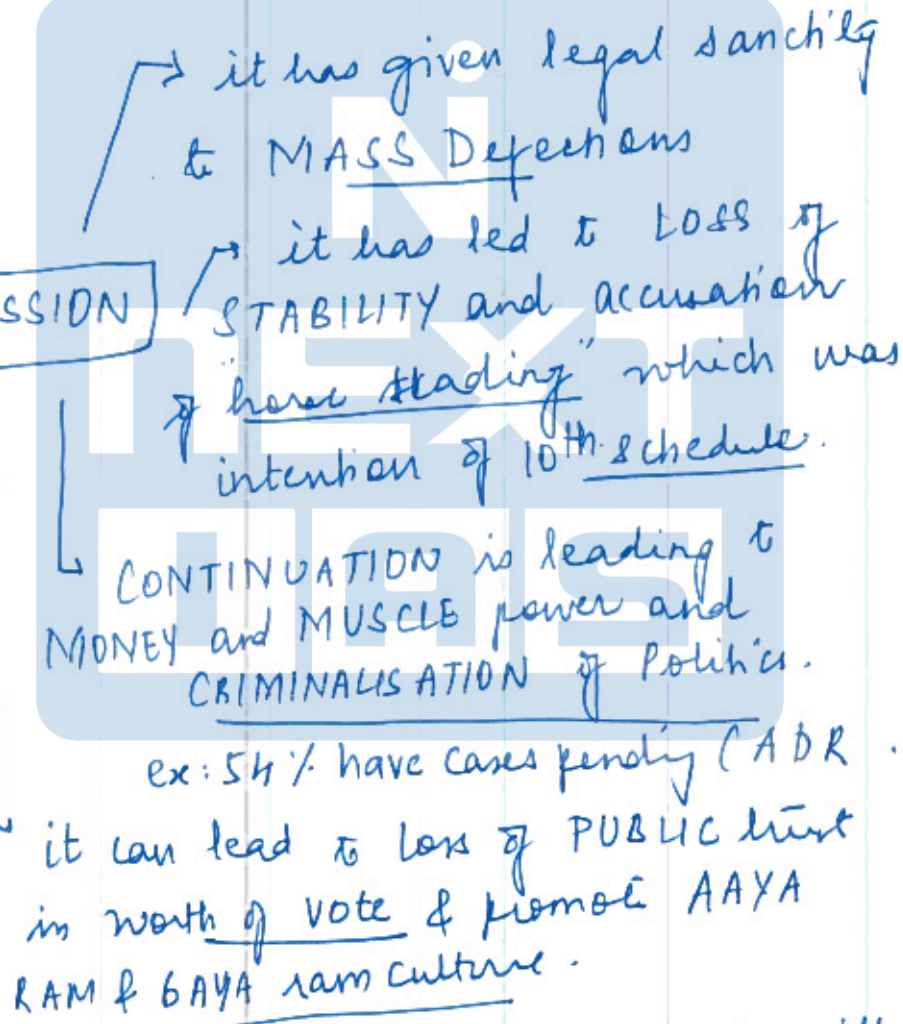 it has given legal sanctity
to MASS Defections
it has led to LOSS of
SSION
STABILITY and accusation
of "horse trading" which was
intention of 10th schedule.
CONTINUATION is leading to
MONEY and MUSCLE power and
CRIMINALISATION of Politics.
ex: 54% have cases pending (ADR.
it can lead to loss of PUBLIC trust
in worth of vote & promote AAYA
RAM & GAYA ram culture.
NEXT
IAS